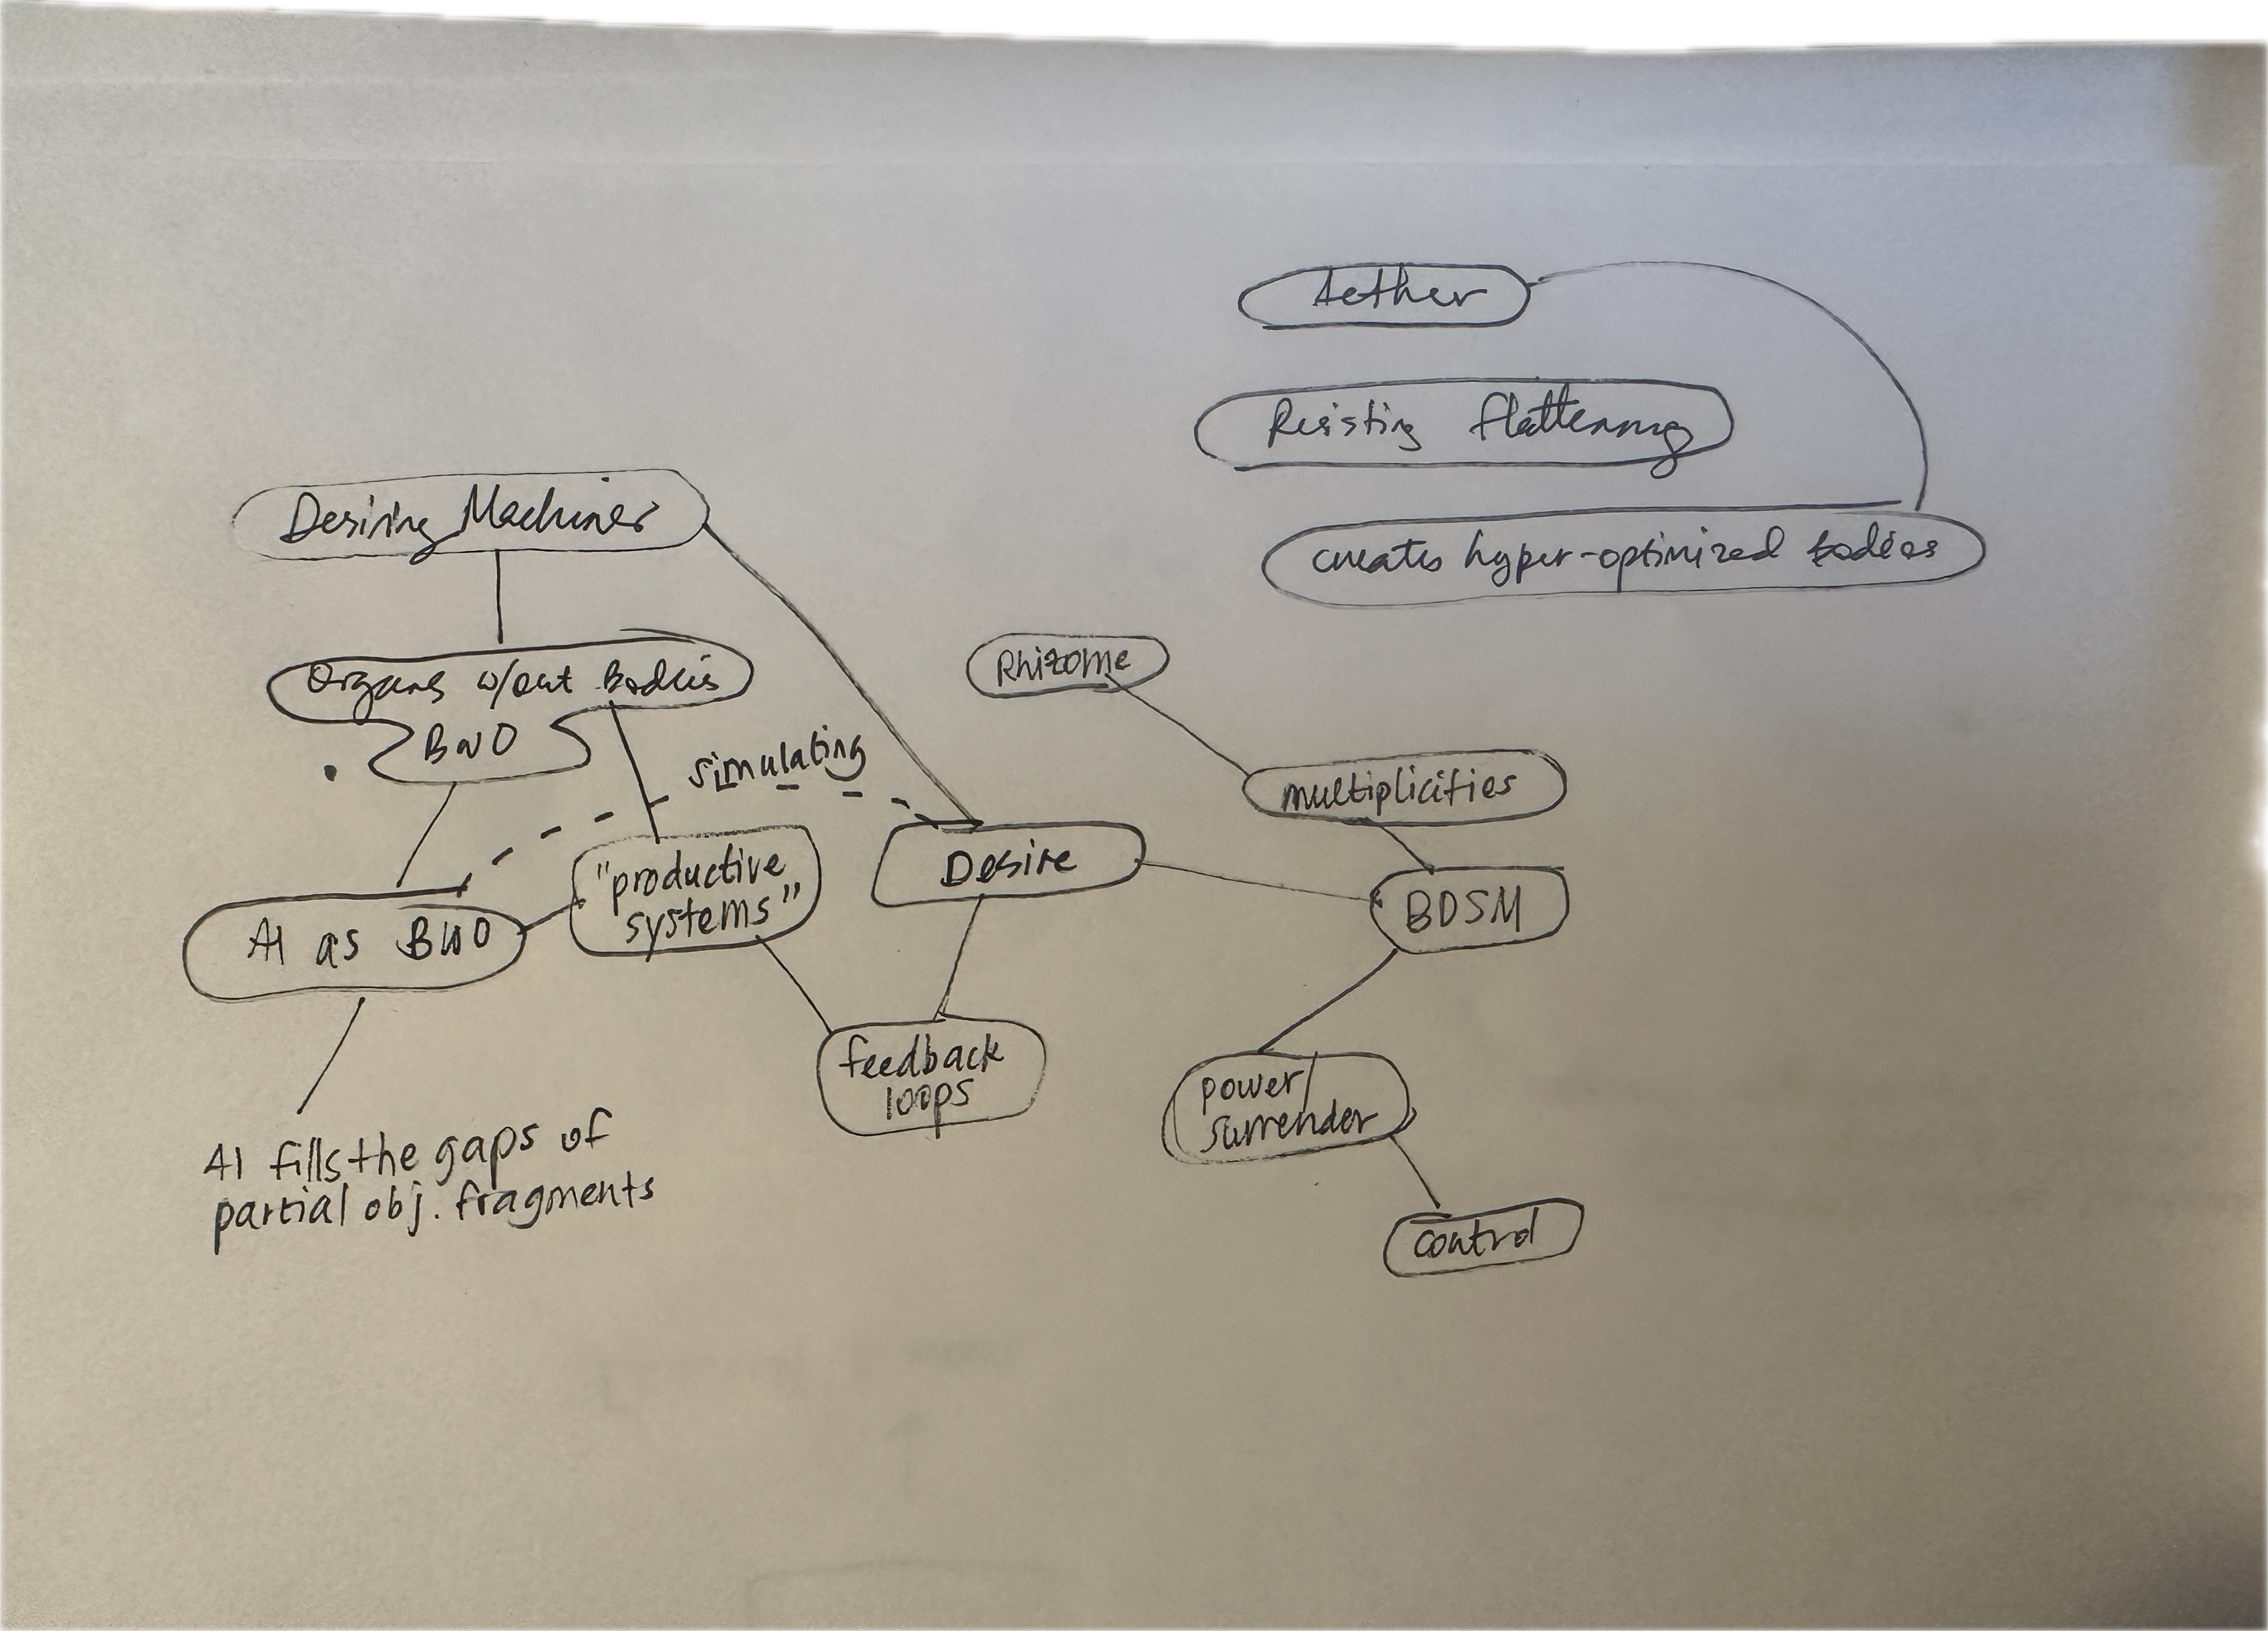 Aether
Resisting flattening
creates hyper-optimized bodies
Desiring Machines
Organs w/out Bodies
BwO
Rhizome
simulating
multiplicities
"productive
systems"
Desire
BDSM
AI as BwO
feedback
loops
power/
surrender
AI fills the gaps of
partial obj. fragments
control